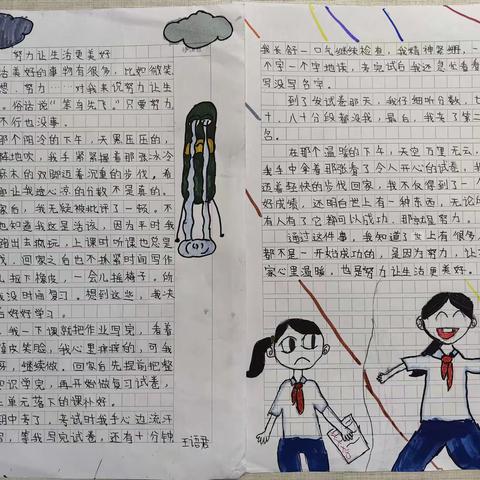 努力让生活更美好
活美好的事物有很多，比如微笑
想，努力……对我来说努力让生
。俗话说“笨鸟先飞。”只要努力
不行也没事。
那个阴冷的下午，天黑压压的，
地吹，我手紧紧握着那张冰冷
麻木的双脚迈着沉重的步伐。看
那让我透心凉的分数不是真的。
家后，我无疑被批评了一顿。不
也知道我这是活该，因为平时我
跑出去疯玩，上课时听课也总是
，回家之后也不抓紧时间写作
儿抠下橡皮，一会儿摇椅子。所
我没时间复习。想到这些，我决
后好好学习。
，我一下课就把作业写完，看着
皮笑脸，我心里痒痒的，可我
牙，继续做。回家后先提前把整
知识学完，再开始做复习试卷，
上单元落下的课补好。
期中考了，考试时我手心边流汗
写，等我写完试卷，还有十分钟
王语君
我长舒一口气继续检查，我精神紧绷，一
个字一个字地读，考完试后我还总发看看
写没写名字。
到了发试卷那天，我仔细听分数，七
十，八十分段都没我，最后，我考了第二
名。
在那个温暖的下午，天空万里无云，
我手中拿着那张看了令人开心的试卷，我
迈着轻快的步伐回家，我不仅得到了一个
好成绩，还明白世上有一种东西，无论
有人有了它都可以成功，那就是努力。
通过这件事，我知道了世上有很多人
都不是一开始成功的，是因为努力，让
家心里温暖，也是努力让生活更美好。